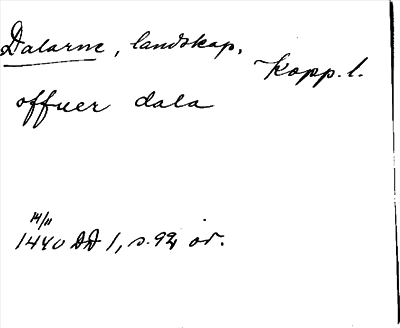 Dalarne, landskap,
Kopp. l.
offuer dala
14/11
1440 DD 1, s. 94 or.